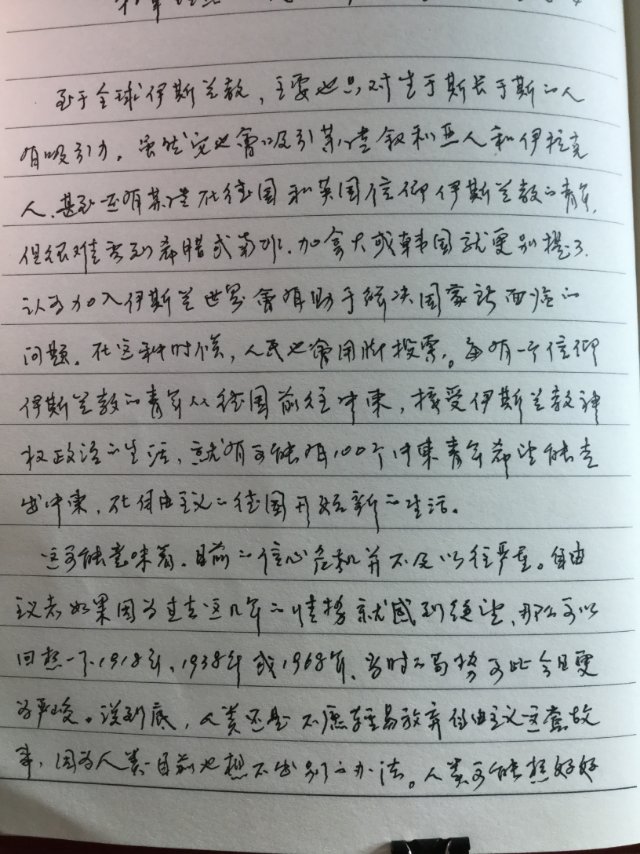 至于全球伊斯兰教，主要也只对生于斯长于斯的人
有吸引力。虽然它也会吸引某些叙利亚人和伊拉克
人，甚至还有某些在德国和英国信仰伊斯兰教的青年，
但很难看到希腊或南非，加拿大或韩国就更别提了，
认为加入伊斯兰世界会有助于解决国家所面临的
问题。在这种时候，人民也常用脚投票。每有一个信仰
伊斯兰教的青年从德国前往中东，接受伊斯兰教神
权政治的生活，就有可能有100个中东青年希望能走
出中东，在自由主义的德国开始新的生活。
这可能意味着，目前的信心危机并不及以往严重。自由
主义者如果因为过去这几年的情势就感到绝望，那么可以
回想一下1918年、1938年或1968年，当时的局势可比今日更
为严峻。说到底，人类还是不愿轻易放弃自由主义这套故
事，因为人类目前也想不出别的办法。人类可能想好好